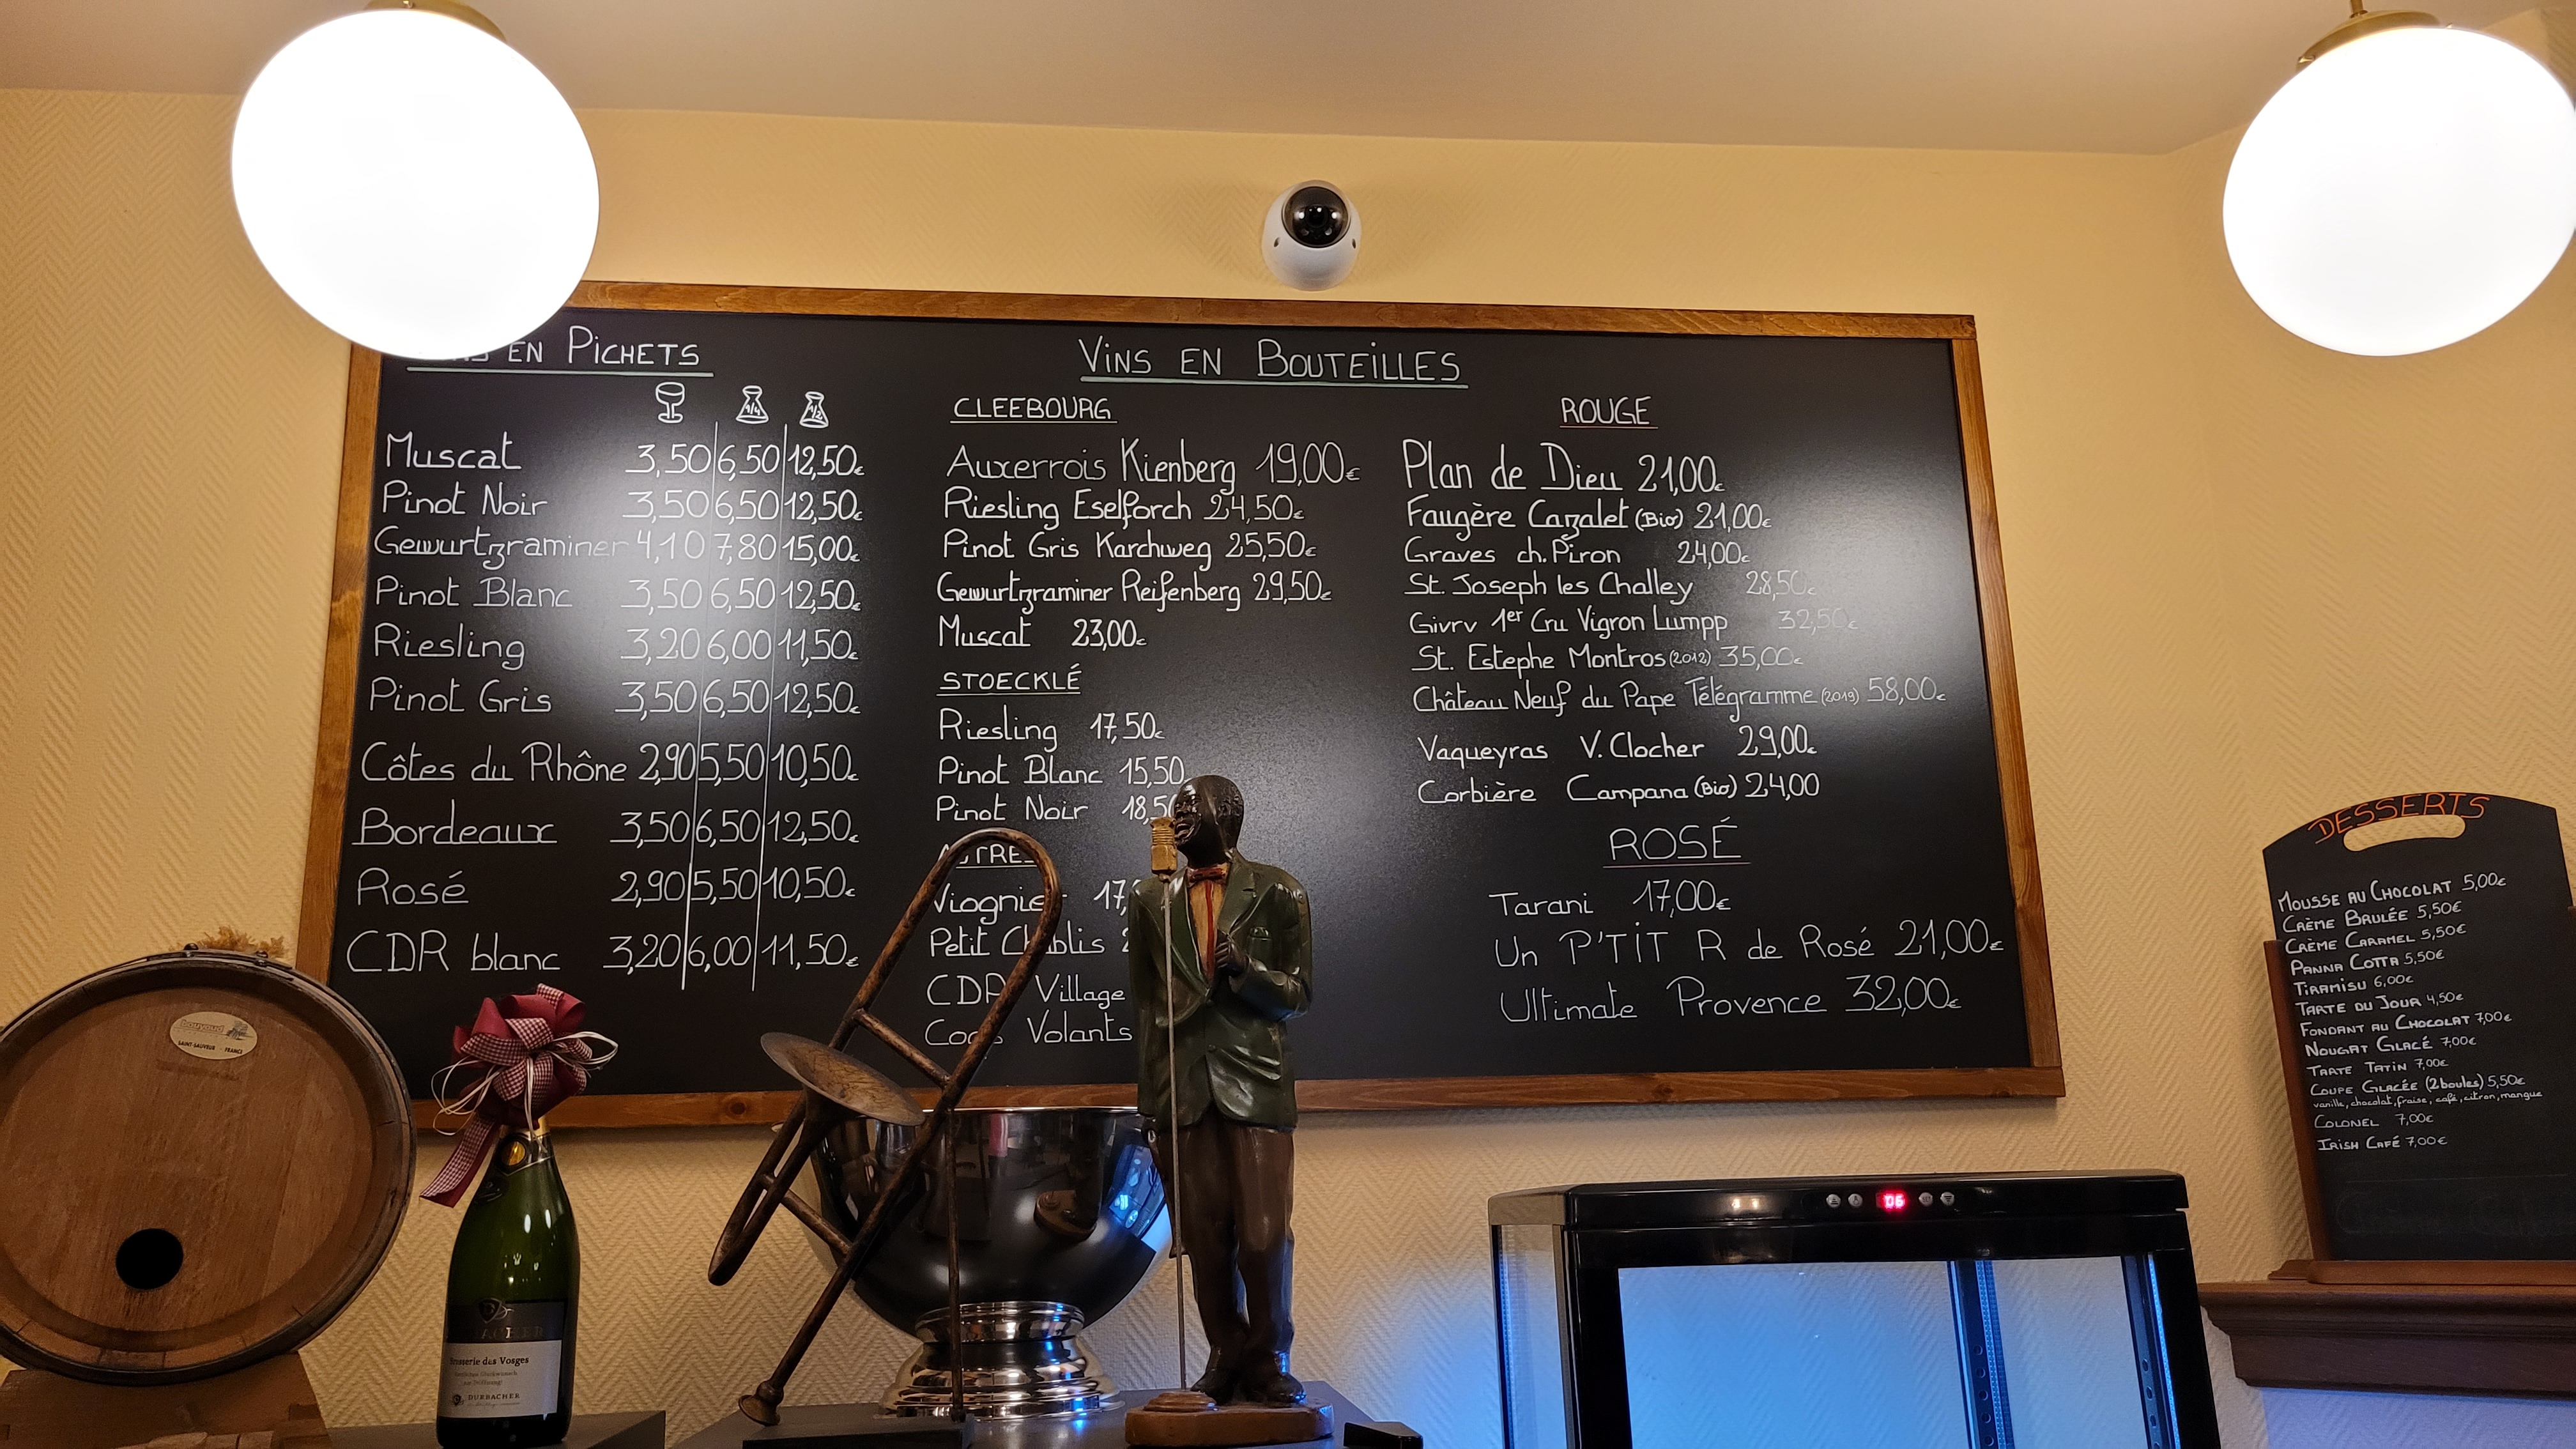 EN PICHETS
1/4 1/2
Muscat 3,50 6,50 12,50€
Pinot Noir 3,50 6,50 12,50€
Gewurtzraminer 4,10 7,80 15,00€
Pinot Blanc 3,50 6,50 12,50€
Riesling 3,20 6,00 11,50€
Pinot Gris 3,50 6,50 12,50€
Côtes du Rhône 2,90 5,50 10,50€
Bordeaux 3,50 6,50 12,50€
Rosé 2,90 5,50 10,50€
CDR blanc 3,20 6,00 11,50€
VINS EN BOUTEILLES
CLEEBOURG
Auxerrois Kienberg 19,00€
Riesling Eselforch 24,50€
Pinot Gris Karchweg 25,50€
Gewurtzraminer Reifenberg 29,50€
Muscat 23,00€
STOECKLÉ
Riesling 17,50€
Pinot Blanc 15,50
Pinot Noir 18,50
AUTRES
Viognier 17,
Petit Chablis
CDR Village
Coqs Volants
ROUGE
Plan de Dieu 21,00€
Faugère Cazalet (Bio) 21,00€
Graves ch. Piron 24,00€
St. Joseph les Challey 28,50€
Givrv 1er Cru Vigron Lumpp 32,50€
St. Estephe Montros (2012) 35,00€
Château Neuf du Pape Télégramme (2019) 58,00€
Vaqueyras V. Clocher 29,00€
Corbière Campana (Bio) 24,00
ROSÉ
Tarani 17,00€
Un P'TIT R de Rosé 21,00€
Ultimate Provence 32,00€
DESSERTS
MOUSSE AU CHOCOLAT 5,00€
CRÈME BRULÉE 5,50€
CRÈME CARAMEL 5,50€
PANNA COTTA 5,50€
TIRAMISU 6,00€
TARTE DU JOUR 4,50€
FONDANT AU CHOCOLAT 7,00€
NOUGAT GLACÉ 7,00€
TARTE TATIN 7,00€
COUPE GLACÉE (2 boules) 5,50€
vanille, chocolat, fraise, café, citron, mangue
COLONEL 7,00€
IRISH CAFÉ 7,00€
SAINT-SAUVEUR - FRANCE
des Vosges
DURBACHER
06